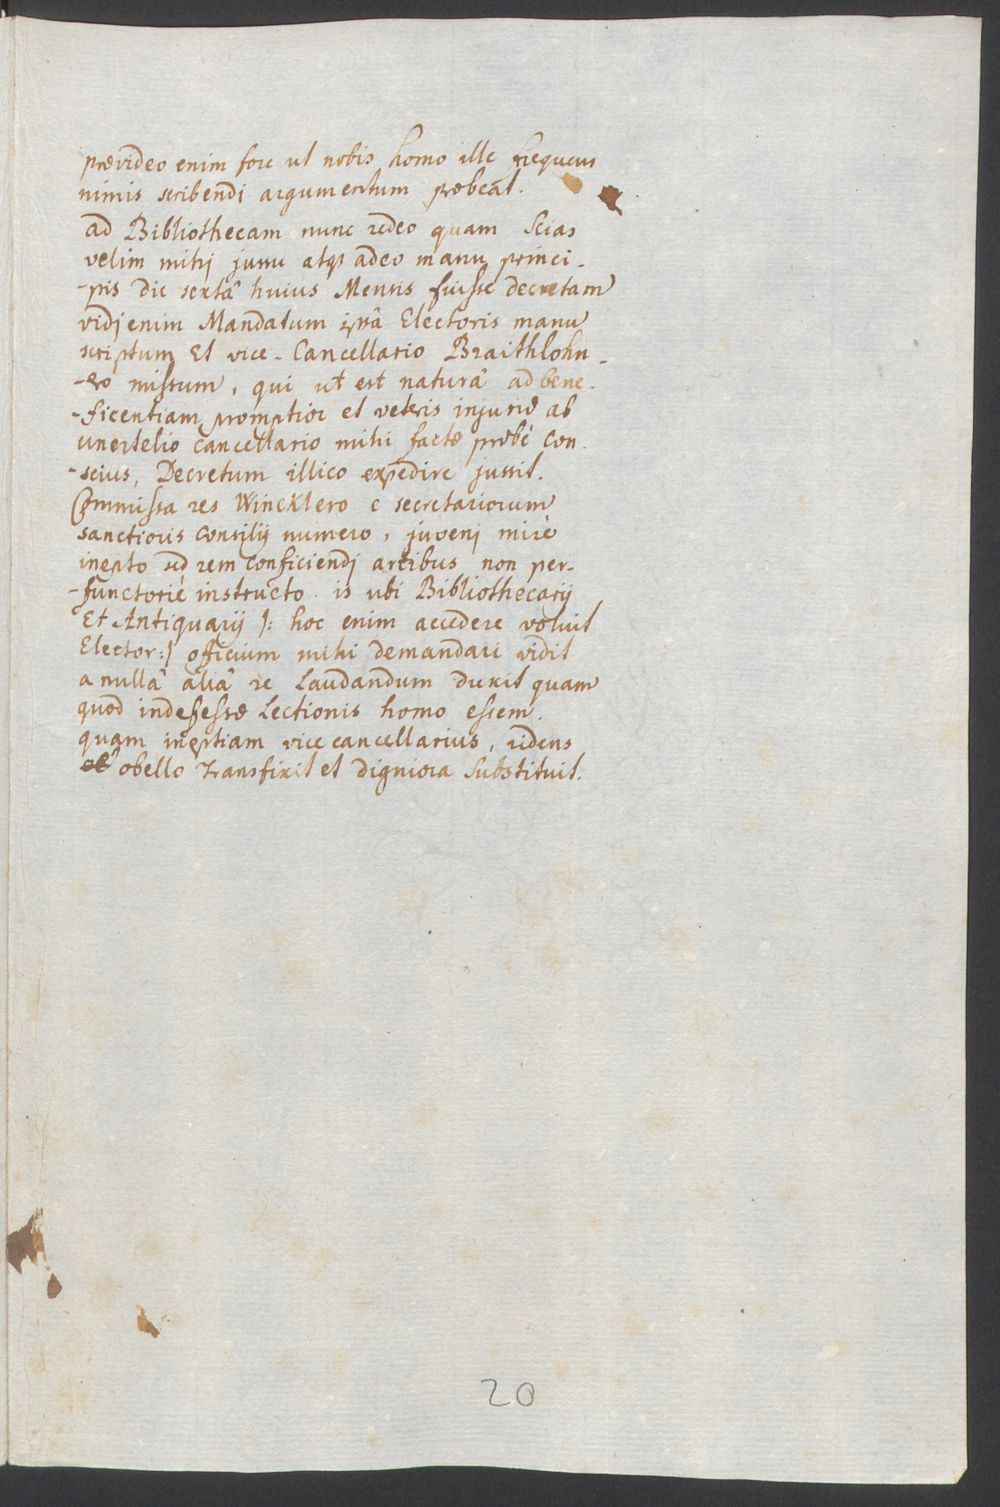 prævideo enim fore ut nobis homo ille frequens
nimis scribendi argumentum præbeat.
ad Bibliothecam nunc redeo quam Scias
velim mihj jussu atqꝫ adeo manu princi-
-pis die sextâ huius Mensis fuisse decretam
vidj enim Mandatum ipsâ Electoris manu
scriptum Et vice-Cancellario Braithlohn-
-ero missum, qui ut est naturâ ad bene-
-ficentiam promptior et veteris injuriæ ab
cancellario mihi factæ probè con-
-scius, Decretum illico expedire jussit.
Commissa res Wincklero è secretariorum
sanctioris Consilij numero, juvenj mirè
inepto ad rem conficiendj artibus non per-
-functoriè instructo. is ubi Bibliothecarij
Et Antiquarij |: hoc enim accedere voluit
Elector:| officium mihi demandari vidit
a nullâ aliâ re Laudandum duxit quam
quod indefessæ Lectionis homo essem.
quam ineptiam vice cancellarius, ridens
obello transfixit et digniora Substituit.
20